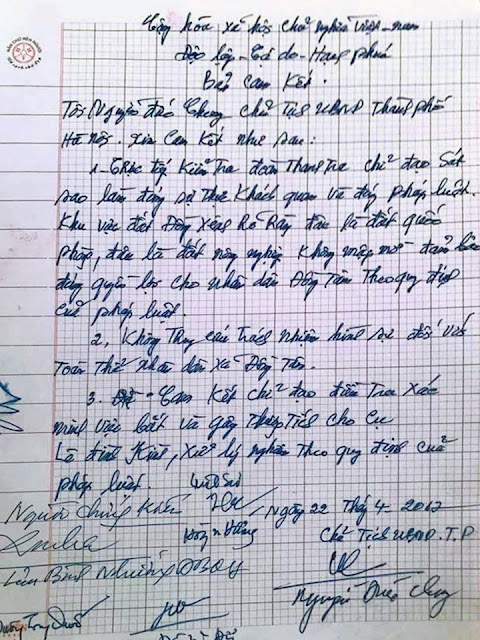 Cộng hòa xã hội chủ nghĩa việt-nam
Độc lập-Tự do-Hạnh phúc
Bản Cam Kết.
Tôi Nguyễn đức Chung chủ Tịch UBND Thành phố
Hà nội. xin Cam Kết như sau:
1-Trực tiếp Kiểm Tra đoàn Thanh Tra chỉ đạo Sát
sao làm đúng sự thật Khách quan và đúng pháp luật.
Khu vực đất Đồng Sênh Rõ Ràng đâu là đất quốc
phòng, đâu là đất nông nghiệp Không mập mờ đảm bảo
đúng quyền lợi cho nhân dân Đồng Tâm Theo quy định
của pháp luật.
2, Không Truy Cứu Trách nhiệm hình sự đối với
Toàn Thể nhân dân xã Đồng Tâm.
3. Cam Kết chỉ đạo điều Tra Xác
minh việc bắt và gây Thương Tích cho Cụ
Lê đình Kình, Xử lý nghiêm Theo quy định của
pháp luật.
Luật Sư
Người Chứng Kiến
Ngày 22 Thg 4-2017
Chủ Tịch UBND.T.P
Lưu Bình Nhưỡng ĐBQH
Nguyễn Đức Chung